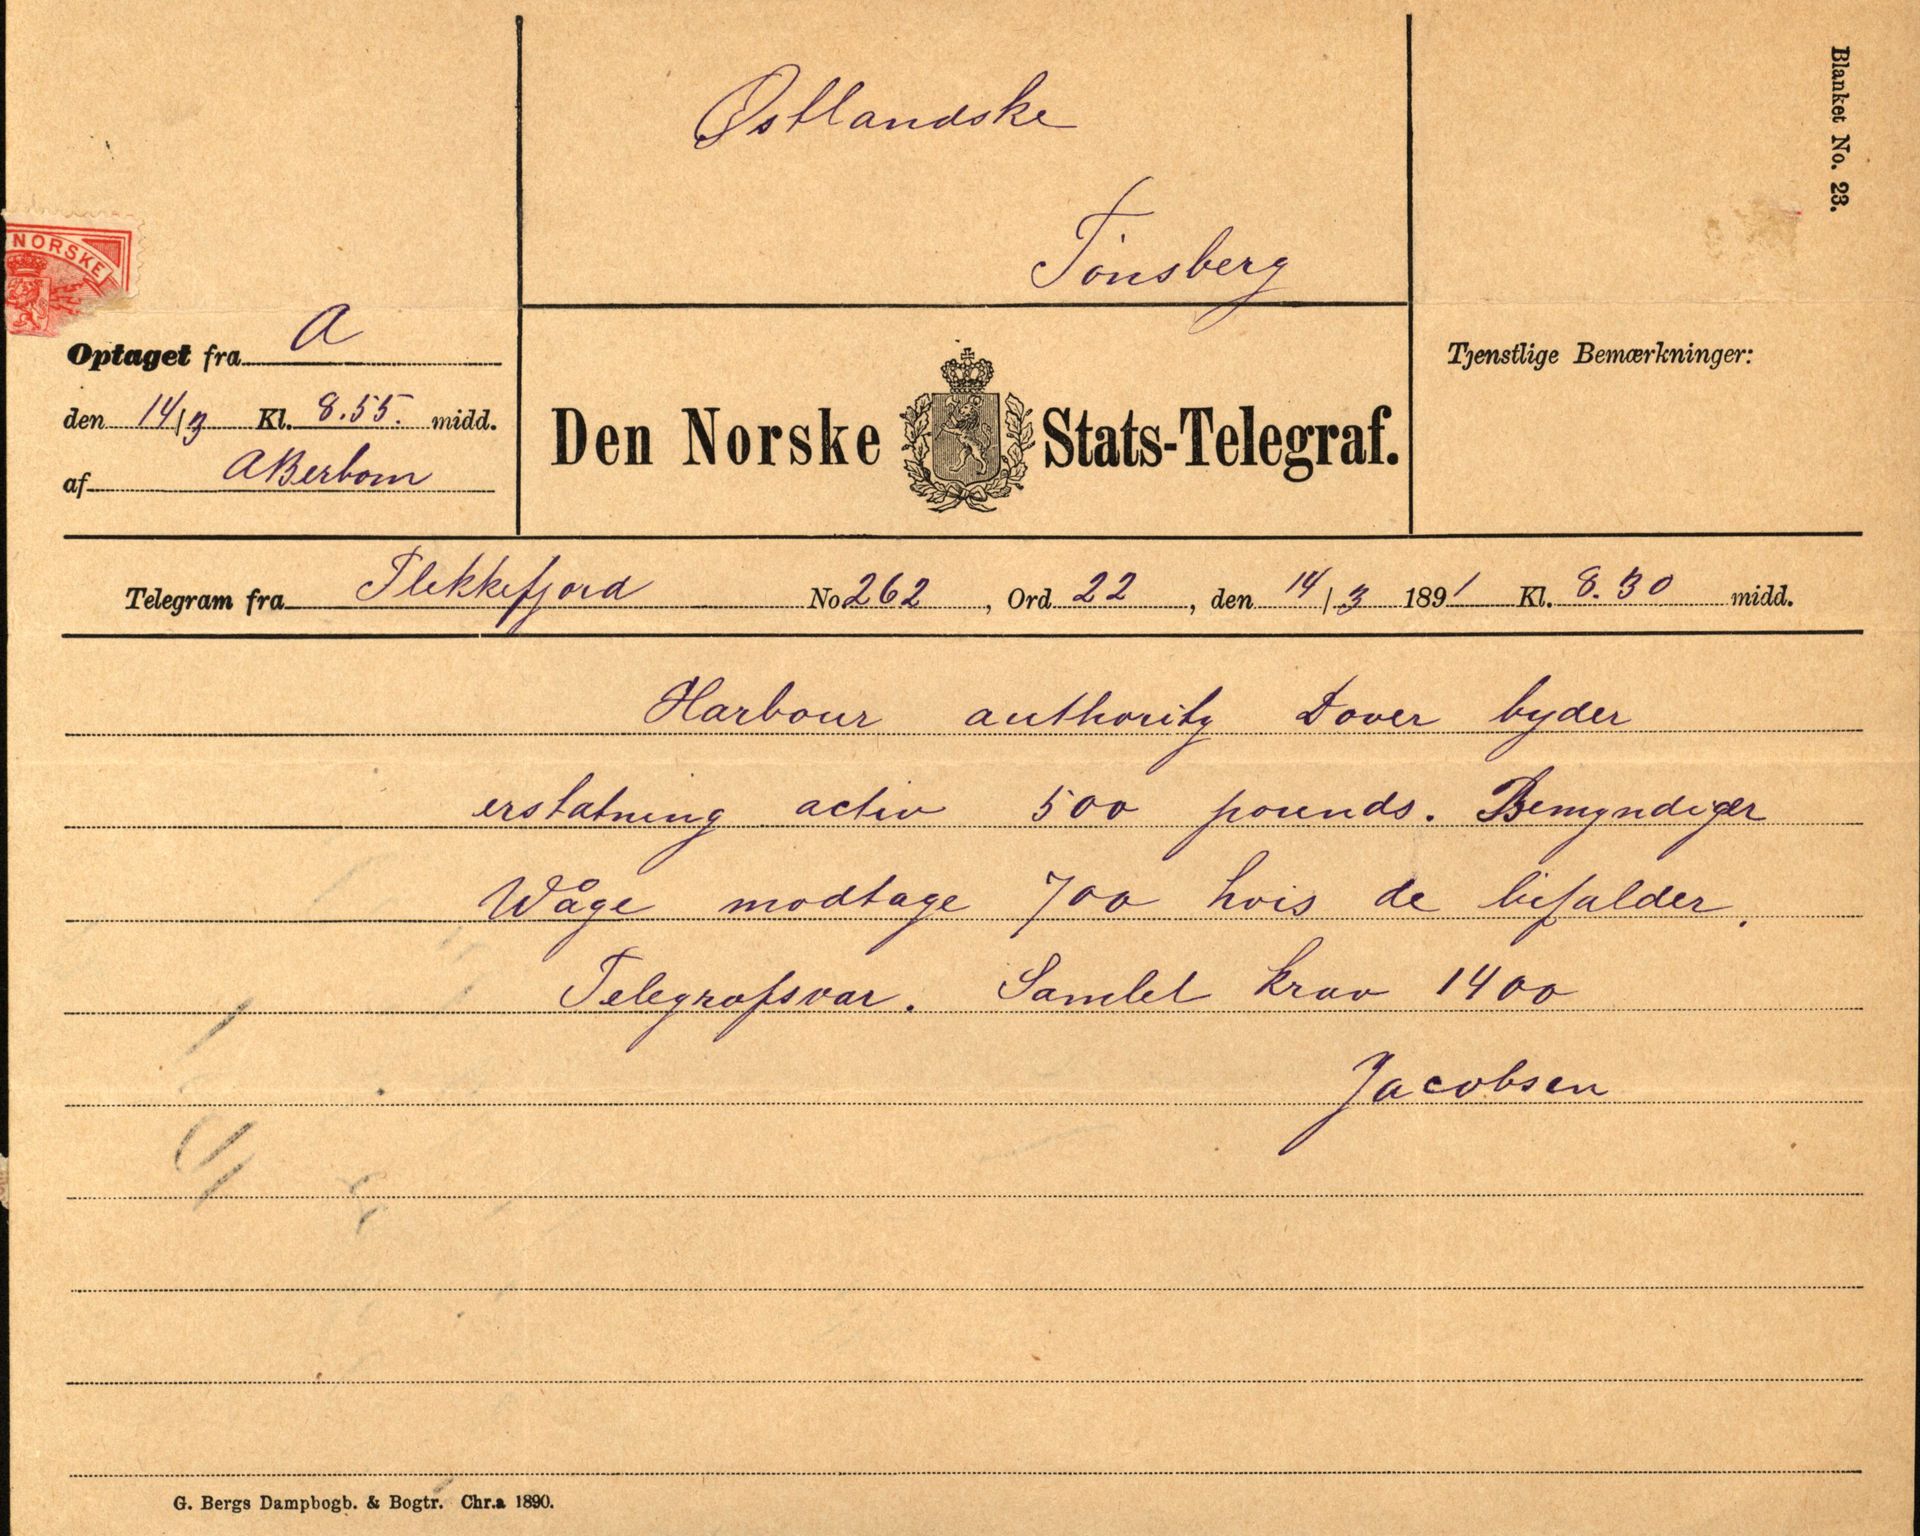 Østlandske
Tönsberg
Blanket No. 23.
NORSKE
Optaget fra A
den 14/3 Kl. 8.55. midd.
af ABerbom
Den Norske Stats-Telegraf.
Tjenstlige Bemærkninger:
Telegram fra Flekkefjord No 262, Ord 22, den 14/3 1891 Kl. 8.30 midd.
Harbour authority Dover byder
erstatning activ 500 pounds. Bemyndiger
Wåge modtage 700 hvis de bifalder.
Telegrafsvar. Samlet krav 1400
Jacobsen
G. Bergs Dampbogb. & Bogtr. Chr.a 1890.